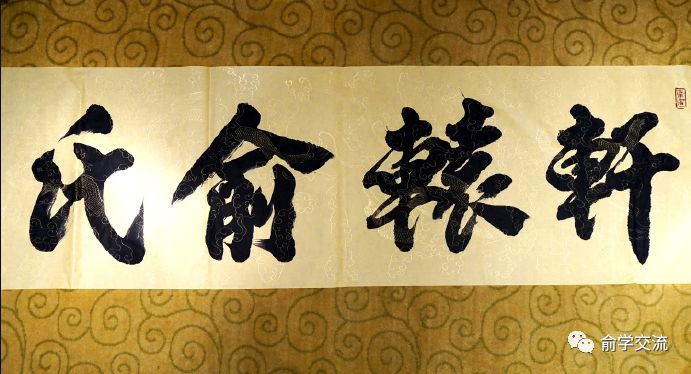 軒轅俞氏
俞学交流